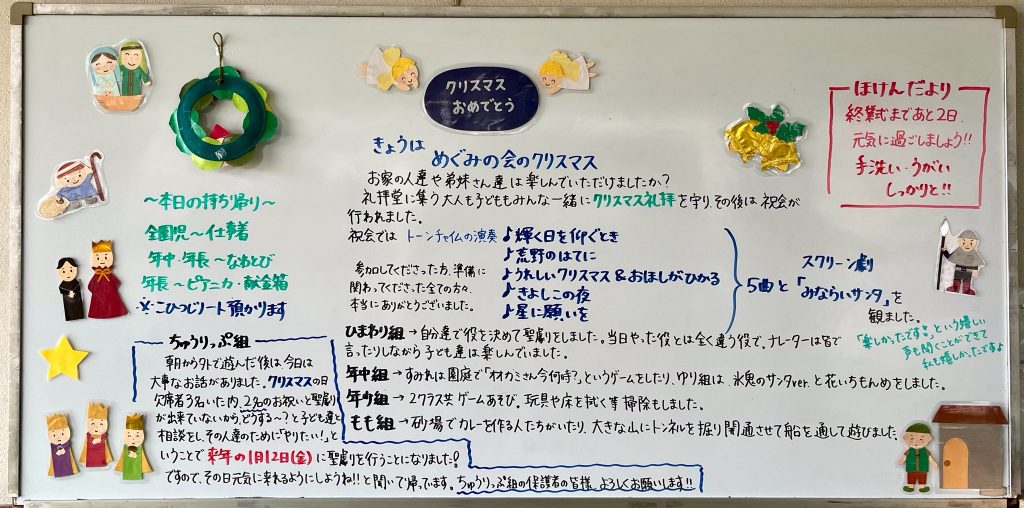 クリスマス
おめでとう
きょうは めぐみの会のクリスマス
お家の人達や弟妹さん達は楽しんでいただけましたか?
礼拝堂に集う大人も子どももみんな一緒にクリスマス礼拝を守り、その後は祝会が
行われました。
祝会では トーンチャイムの演奏
♪輝く日を仰ぐとき
♪荒野のはてに
♪うれしいクリスマス&おほしがひかる
♪きよしこの夜
♪星に願いを
5曲と
スクリーン劇
「みならいサンタ」を
観ました。
「楽しかったです」という嬉しい
声も聞くことができて
私も嬉しかったですよ
参加してくださった方、準備に
関わってくださった全ての方々、
本当にありがとうございました。
ほけんだより
終業式まであと2日。
元気に過ごしましょう!!
手洗い・うがい
しっかりと!!
〜本日の持ち帰り〜
全園児〜仕事着
年中・年長〜なわとび
年長〜ピアニカ・献金箱
※こひつじノート預かります
ひまわり組→自分達で役を決めて聖劇をしました。当日やった役とは全く違う役で、ナレーターは皆で
言ったりしながら子ども達は楽しんでいました。
年中組→すみれは園庭で「オオカミさん今何時?」というゲームをしたり、ゆり組は、氷鬼のサンタver.と花いちもんめをしました。
年少組→2クラス共ゲームあそび。玩具や床を拭く等掃除もしました。
もも組→砂場でカレーを作る人たちがいたり、大きな山にトンネルを掘り開通させて船を通して遊びました。
ちゅうりっぷ組
朝から外で遊んだ後は、今日は
大事なお話がありました。クリスマスの日
欠席者3名いた内、2名のお祝いと聖劇
が出来ていないから、どうする〜?と子ども達と
相談をし、その人達のために「やりたい!」と
いうことで来年の1月12日(金)に聖劇を行うことになりました!
ですので、その日元気に来れるようにしようね!!と聞いて帰ってます。ちゅうりっぷ組の保護者の皆様、よろしくお願いします!!